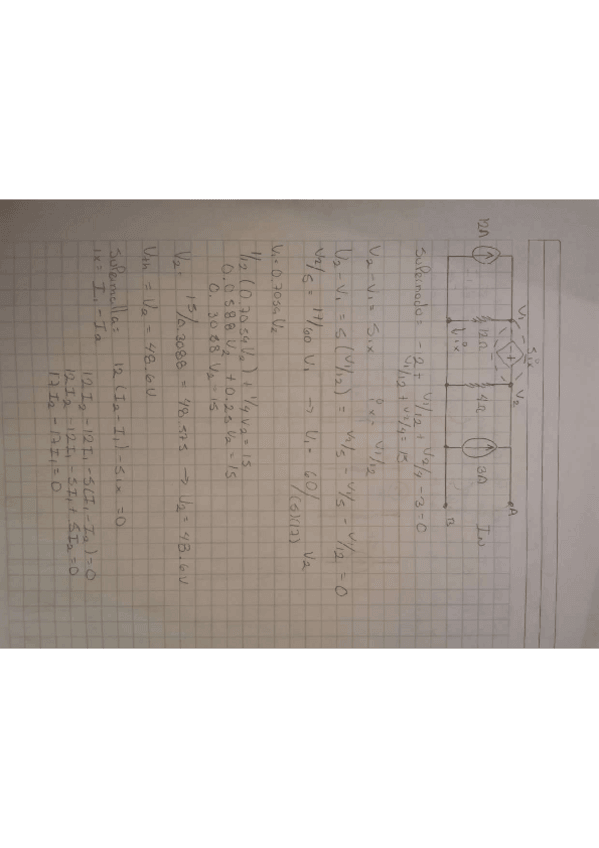 12A
V1
5ix
V2
12Ω
ix
4Ω
3A
A
B
IN
Supernodo: -2 + V1/12 + V2/4 - 3 = 0
V1/12 + V2/4 = 15
V2 - V1 = 5ix    ix = V1/12
V2 - V1 = 5(V1/12) = V2/5 - V1/5 - V1/12 = 0
V2/5 = 17/60 V1 → V1 = 60/(5)(17) V2
V1 = 0.7059V2
1/12 (0.7059V2) + 1/4 V2 = 15
0.0588V2 + 0.25V2 = 15
0.3088V2 = 15
V2 = 15/0.3088 = 48.575 → V2 = 48.6V
Vth = Va = 48.6V
Supermalla: 12(I2 - I1) - 5ix = 0
ix = I1 - I2
12I2 - 12I1 - 5(I1 - I2) = 0
12I2 - 12I1 - 5I1 + 5I2 = 0
17I2 - 17I1 = 0